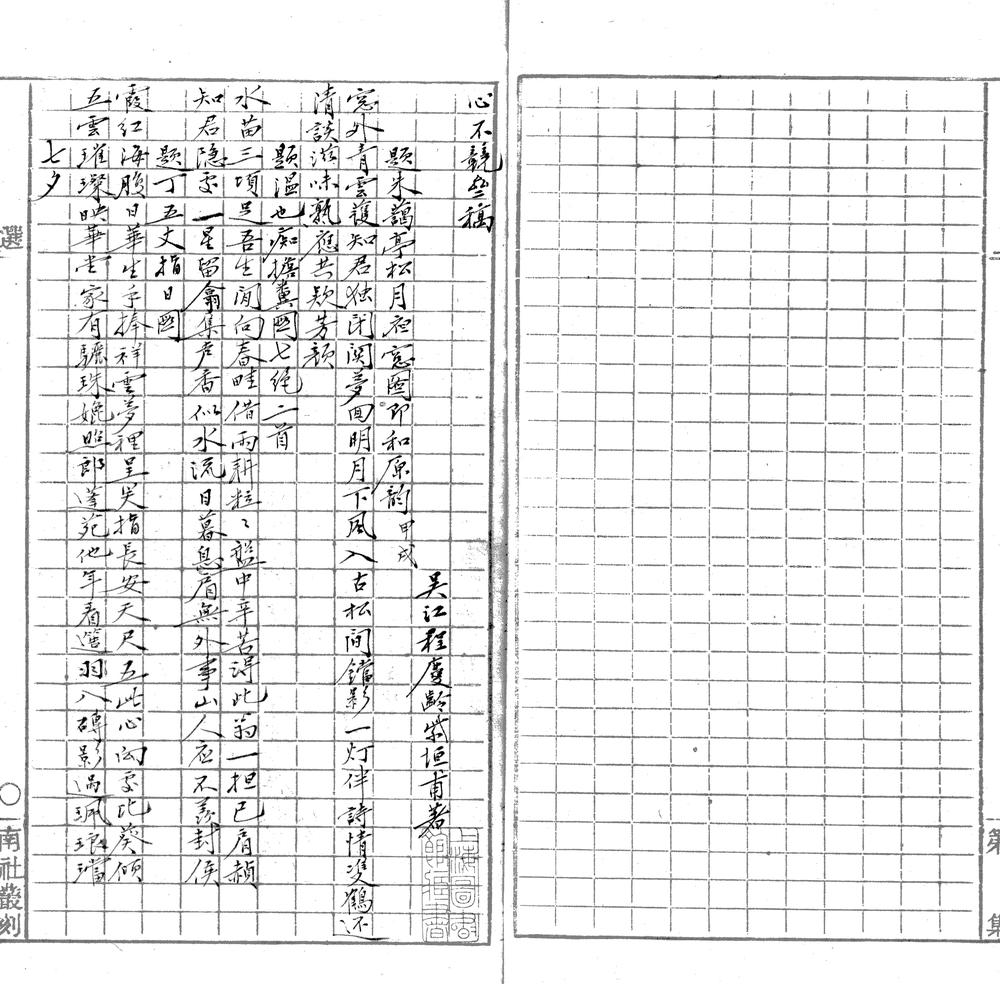 心不競齋稿
吳江程慶齡紫垣甫著
題朱藹亭松月夜窓圖即和原韵 甲戌
窓外青雲護知君独闭関夢回明月下風入古松間鐺影一灯伴詩情雙鶴还
清談滋味熟應共欵芳顏
題温也痴擔糞圖七絕二首
水苗三頃足吾生閒向春畦借雨耕粒〻盤中辛苦淂此翁一担已肩赬
知君隐處一星留翕集声香似水流日暮息肩無外事山人應不羨封侯
題丁五丈指日圖
霞红海腹日華生手捧祥雲夢裡呈笑指長安天尺五此心向處比葵傾
五雲璀璨映華堂家有驪珠娩照郎蓬苑他年看簉羽入磚影過珮琅璫
七夕
選
南社叢刻
第
集
上海圖書館藏書